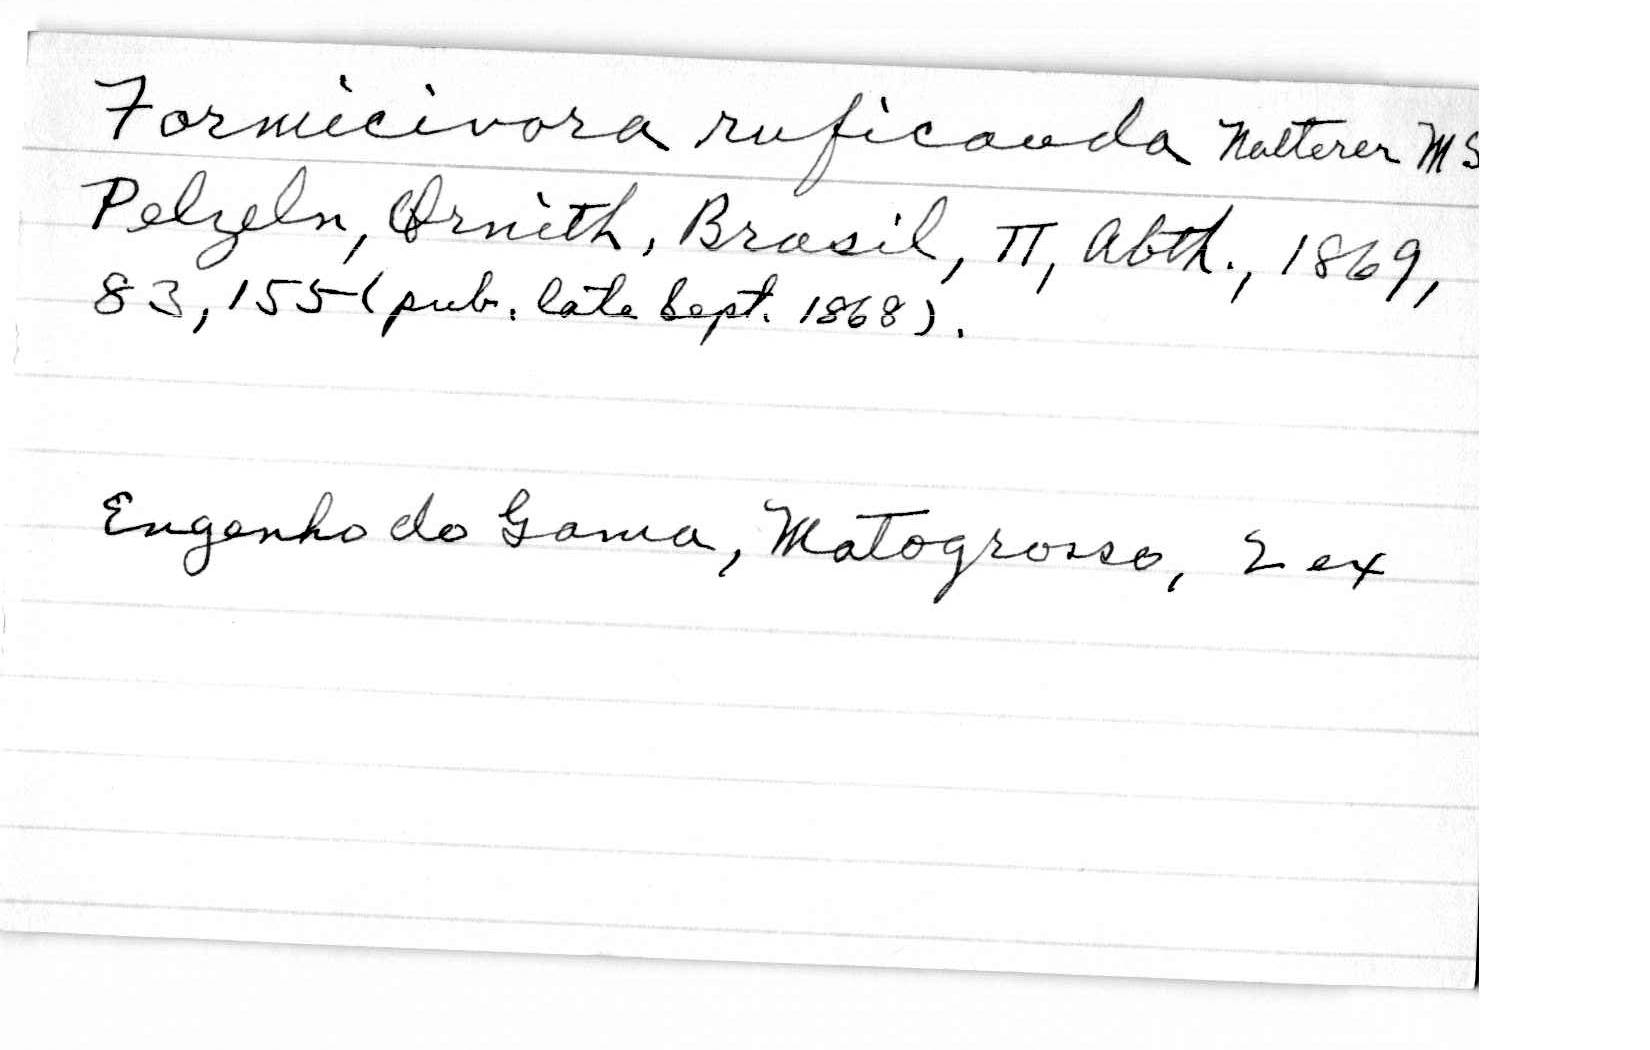 Formicivora ruficauda Natterer MS
Pelzeln, Ornith, Brasil, II, Abth., 1869,
83, 155 (pub. late Sept. 1868).
Engenho do Gama, Matogrosso, 2 ex